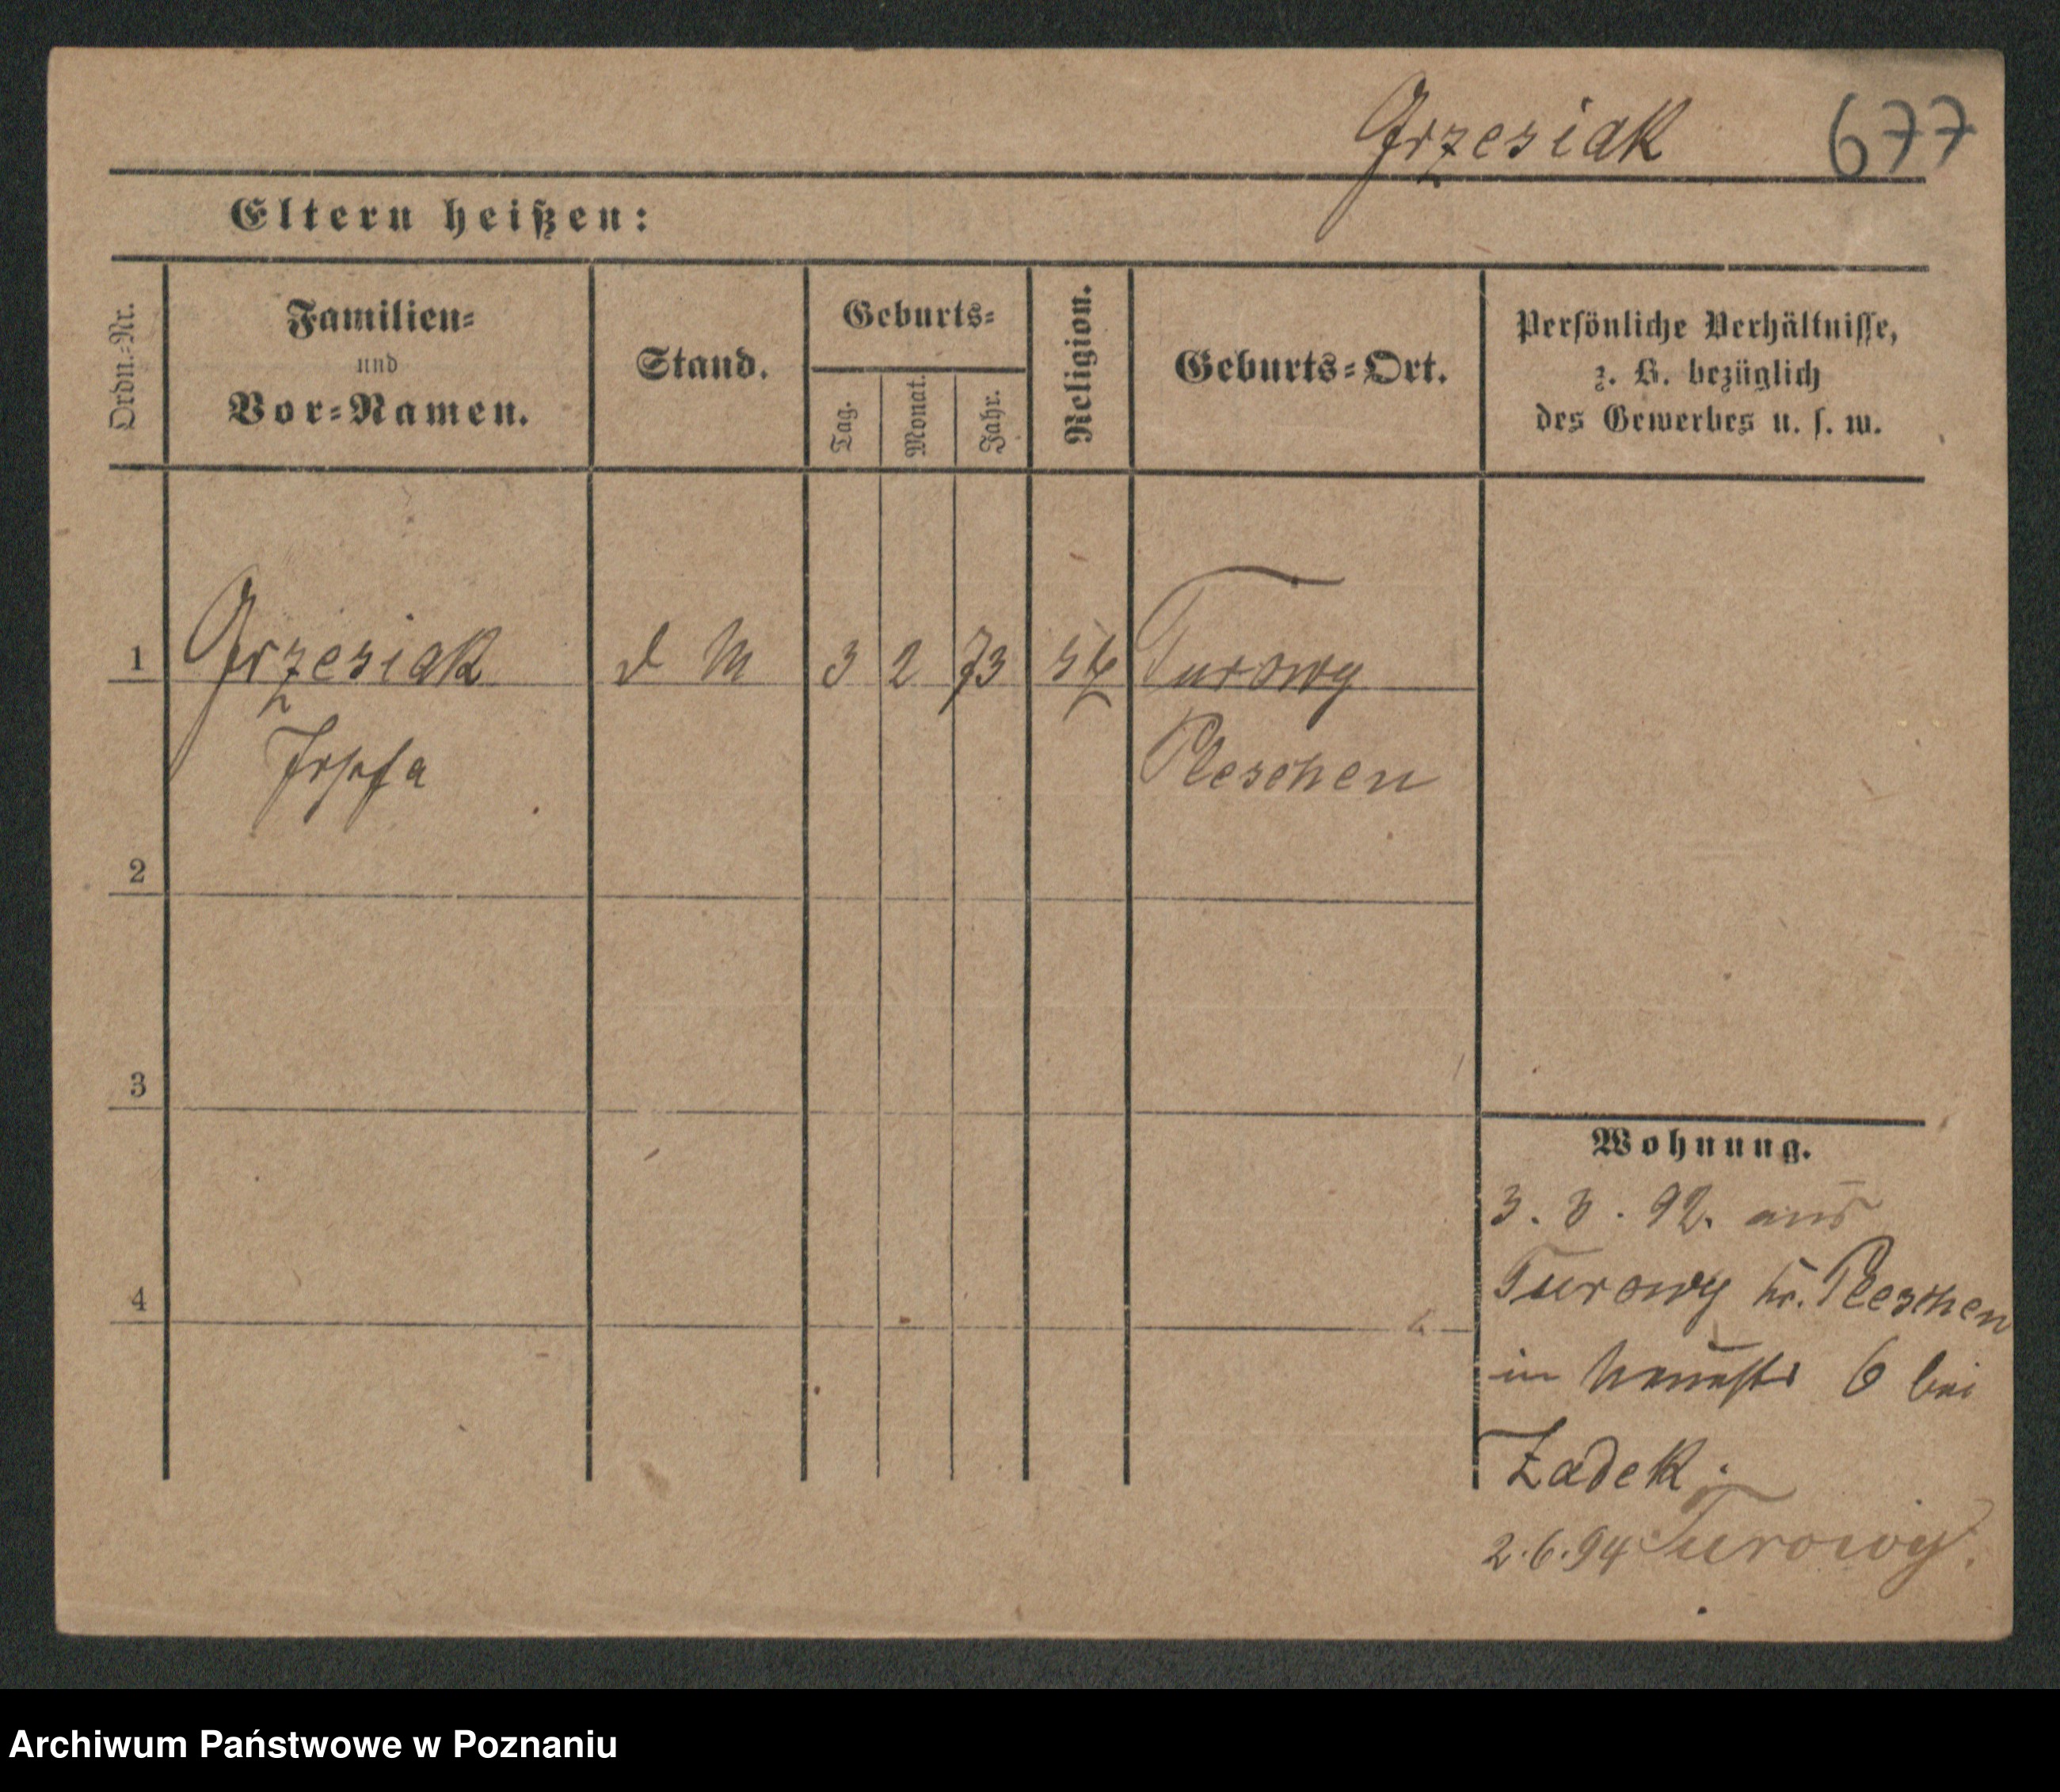 Grzesiak 677
Eltern heißen:
Ordn.-Nr.
Familien-
und
Vor-Namen.
Stand.
Geburts-
Tag.
Monat.
Jahr.
Religion.
Geburts-Ort.
Persönliche Verhältnisse,
z. B. bezüglich
des Gewerbes u. s. w.
1 Grzesiak d M 3 2 73 Turowy
Josefa Pleschen
2
3
4
Wohnung.
3. 3. 92. aus
Turowy kr. Pleschen
in 6 bei
Zadek.
2.6.94 Turowy.
Archiwum Państwowe w Poznaniu